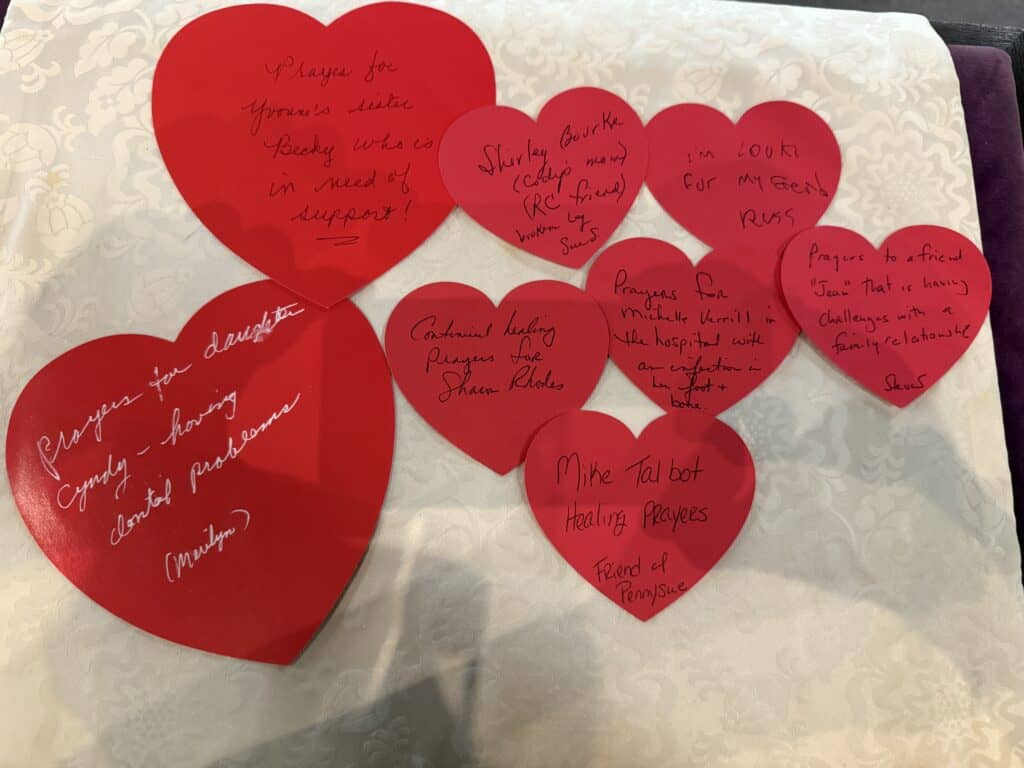 Prayes for
Yvonn's sister
Becky who is
in need of
support!
Shirley Bourke
(Cody's mom)
(RC friend)
broken leg
SueS.
I'm
For my Friend
Russ
Prayers to a friend
"Jean" that is having
challenges with a
family relationship
Prayers for
Michelle Verrill in
the hospital with
an infection in
her foot +
bone.
Continual healing
prayers for
Shawn Rhodes
Prayers for daughter
Cyndy - having
dental problems
(Marilyn)
Mike Talbot
Healing Prayers
Friend of
PennySue